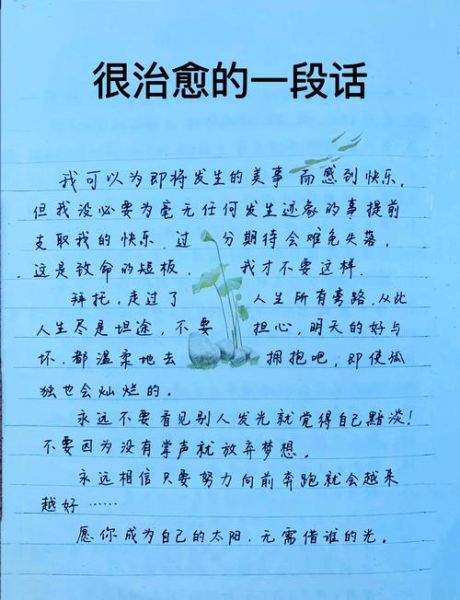 很治愈的一段话
我可以为即将发生的美事而感到快乐,
但我没必要为毫无任何发生迹象的事提前
支取我的快乐.过分期待会难免失落,
这是致命的短板.我才不要这样.
拜托,走过了人生所有弯路.从此
人生尽是坦途,不要担心,明天的好与
坏.都温柔地去拥抱吧,即使孤
独也会灿烂的。
永远不要看见别人发光就觉得自己黯淡!
不要因为没有掌声就放弃梦想。
永远相信只要努力向前奔跑就会越来
越好……
愿你成为自己的太阳.无需借谁的光。